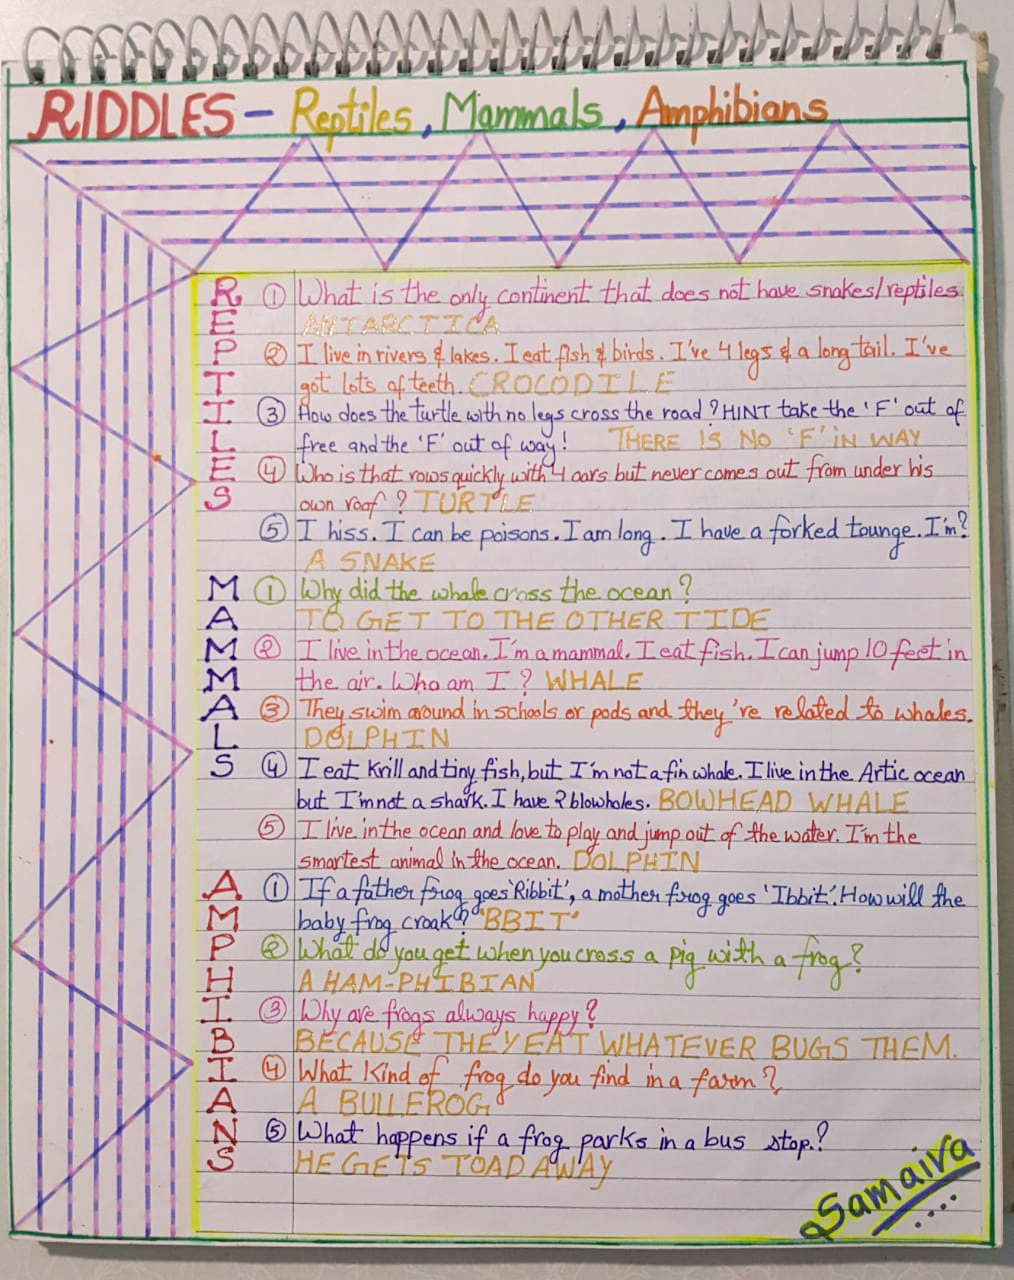 RIDDLES - Reptiles, Mammals, Amphibians
REPTILES
① What is the only continent that does not have snakes/reptiles
ANTARCTICA
② I live in rivers & lakes. I eat fish & birds. I've 4 legs & a long tail. I've
got lots of teeth. CROCODILE
③ How does the turtle with no legs cross the road? HINT take the 'F' out of
free and the 'F' out of way! THERE IS NO 'F' IN WAY
④ Who is that rows quickly with 4 oars but never comes out from under his
own roof? TURTLE
⑤ I hiss. I can be poisons. I am long. I have a forked tounge. I'm?
A SNAKE
MAMMALS
① Why did the whale cross the ocean?
TO GET TO THE OTHER TIDE
② I live in the ocean. I'm a mammal. I eat fish. I can jump 10 feet in
the air. Who am I? WHALE
③ They swim around in schools or pods and they're related to whales.
DOLPHIN
④ I eat Krill and tiny fish, but I'm not a fin whale. I live in the Artic ocean
but I'm not a shark. I have 2 blowholes. BOWHEAD WHALE
⑤ I live in the ocean and love to play and jump out of the water. I'm the
smartest animal in the ocean. DOLPHIN
AMPHIBIANS
① If a father frog goes 'Ribbit', a mother frog goes 'Ibbit'. How will the
baby frog croak? 'BBIT'
② What do you get when you cross a pig with a frog?
A HAM-PHIBIAN
③ Why are frogs always happy?
BECAUSE THEY EAT WHATEVER BUGS THEM.
④ What Kind of frog do you find in a farm?
A BULLFROG
⑤ What happens if a frog parks in a bus stop.?
HE GETS TOAD AWAY
Samaira